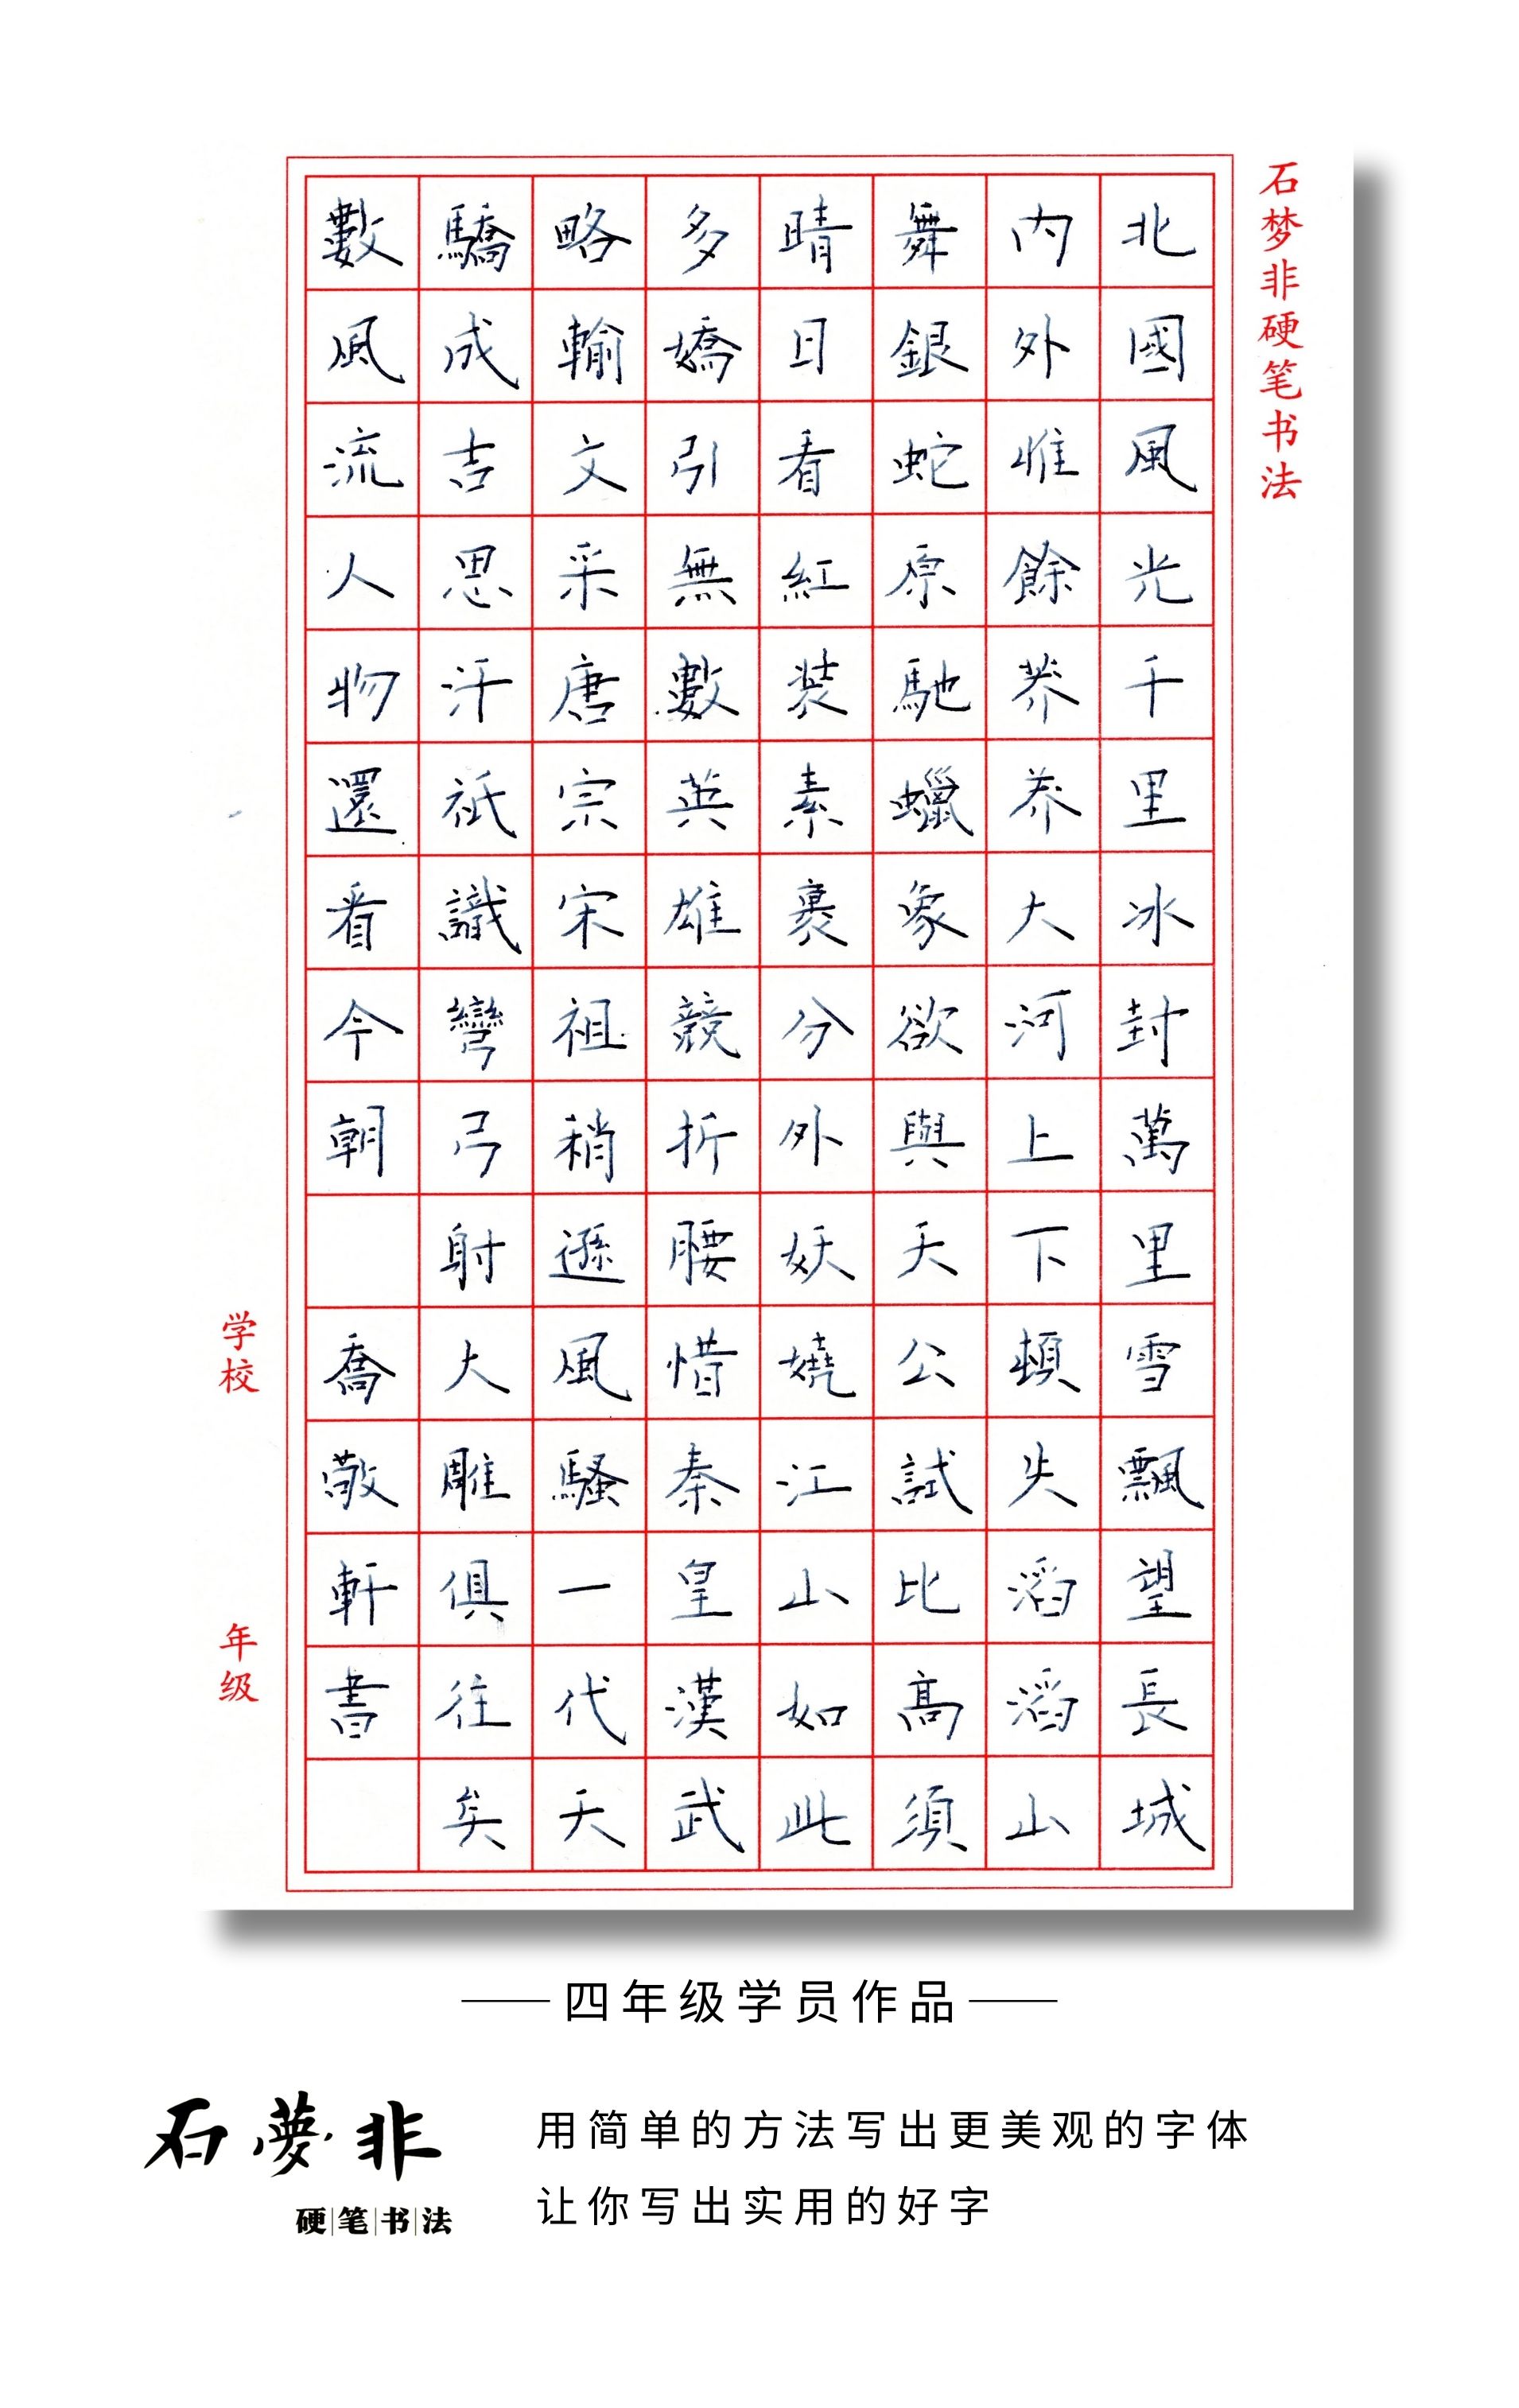 石梦非硬笔书法
北國風光千里冰封萬里雪飄望長城
内外惟餘莽莽大河上下頓失滔滔山
舞銀蛇原馳蠟象欲與天公試比高須
晴日看紅装素裹分外妖嬈江山如此
多嬌引無數英雄競折腰惜秦皇漢武
略輸文采唐宗宋祖稍遜風騷一代天
驕成吉思汗祇識彎弓射大雕俱往矣
數風流人物還看今朝 喬敬軒書
学校 年级
四年级学员作品
石夢非
硬笔书法
用简单的方法写出更美观的字体
让你写出实用的好字